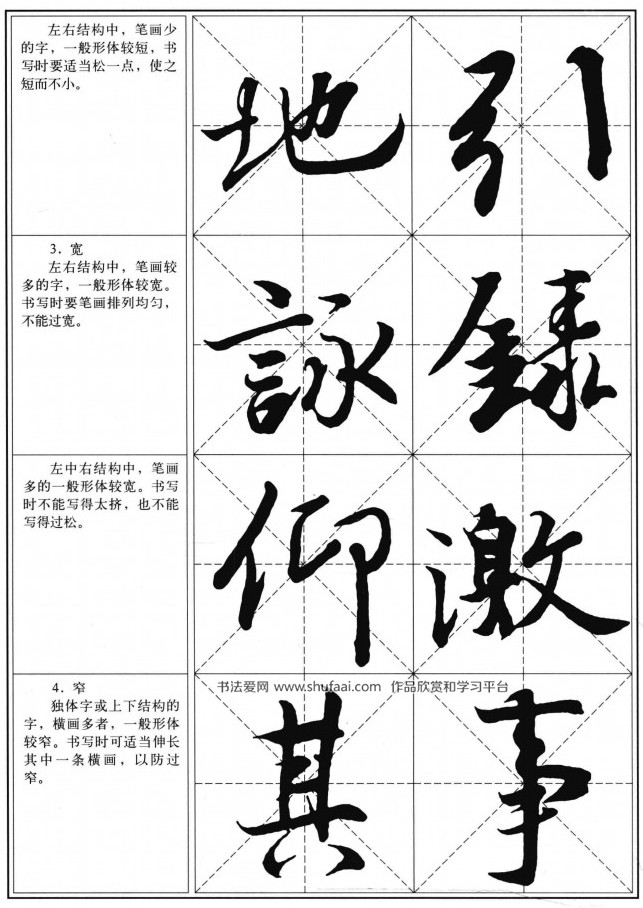 左右结构中，笔画少
的字，一般形体较短，书
写时要适当松一点，使之
短而不小。
地引
3．宽
左右结构中，笔画较
多的字，一般形体较宽。
书写时要笔画排列均匀，
不能过宽。
詠録
左中右结构中，笔画
多的一般形体较宽。书写
时不能写得太挤，也不能
写得过松。
仰激
4．窄
独体字或上下结构的
字，横画多者，一般形体
较窄。书写时可适当伸长
其中一条横画，以防过
窄。
书法爱网 www.shufaai.com 作品欣赏和学习平台
其事